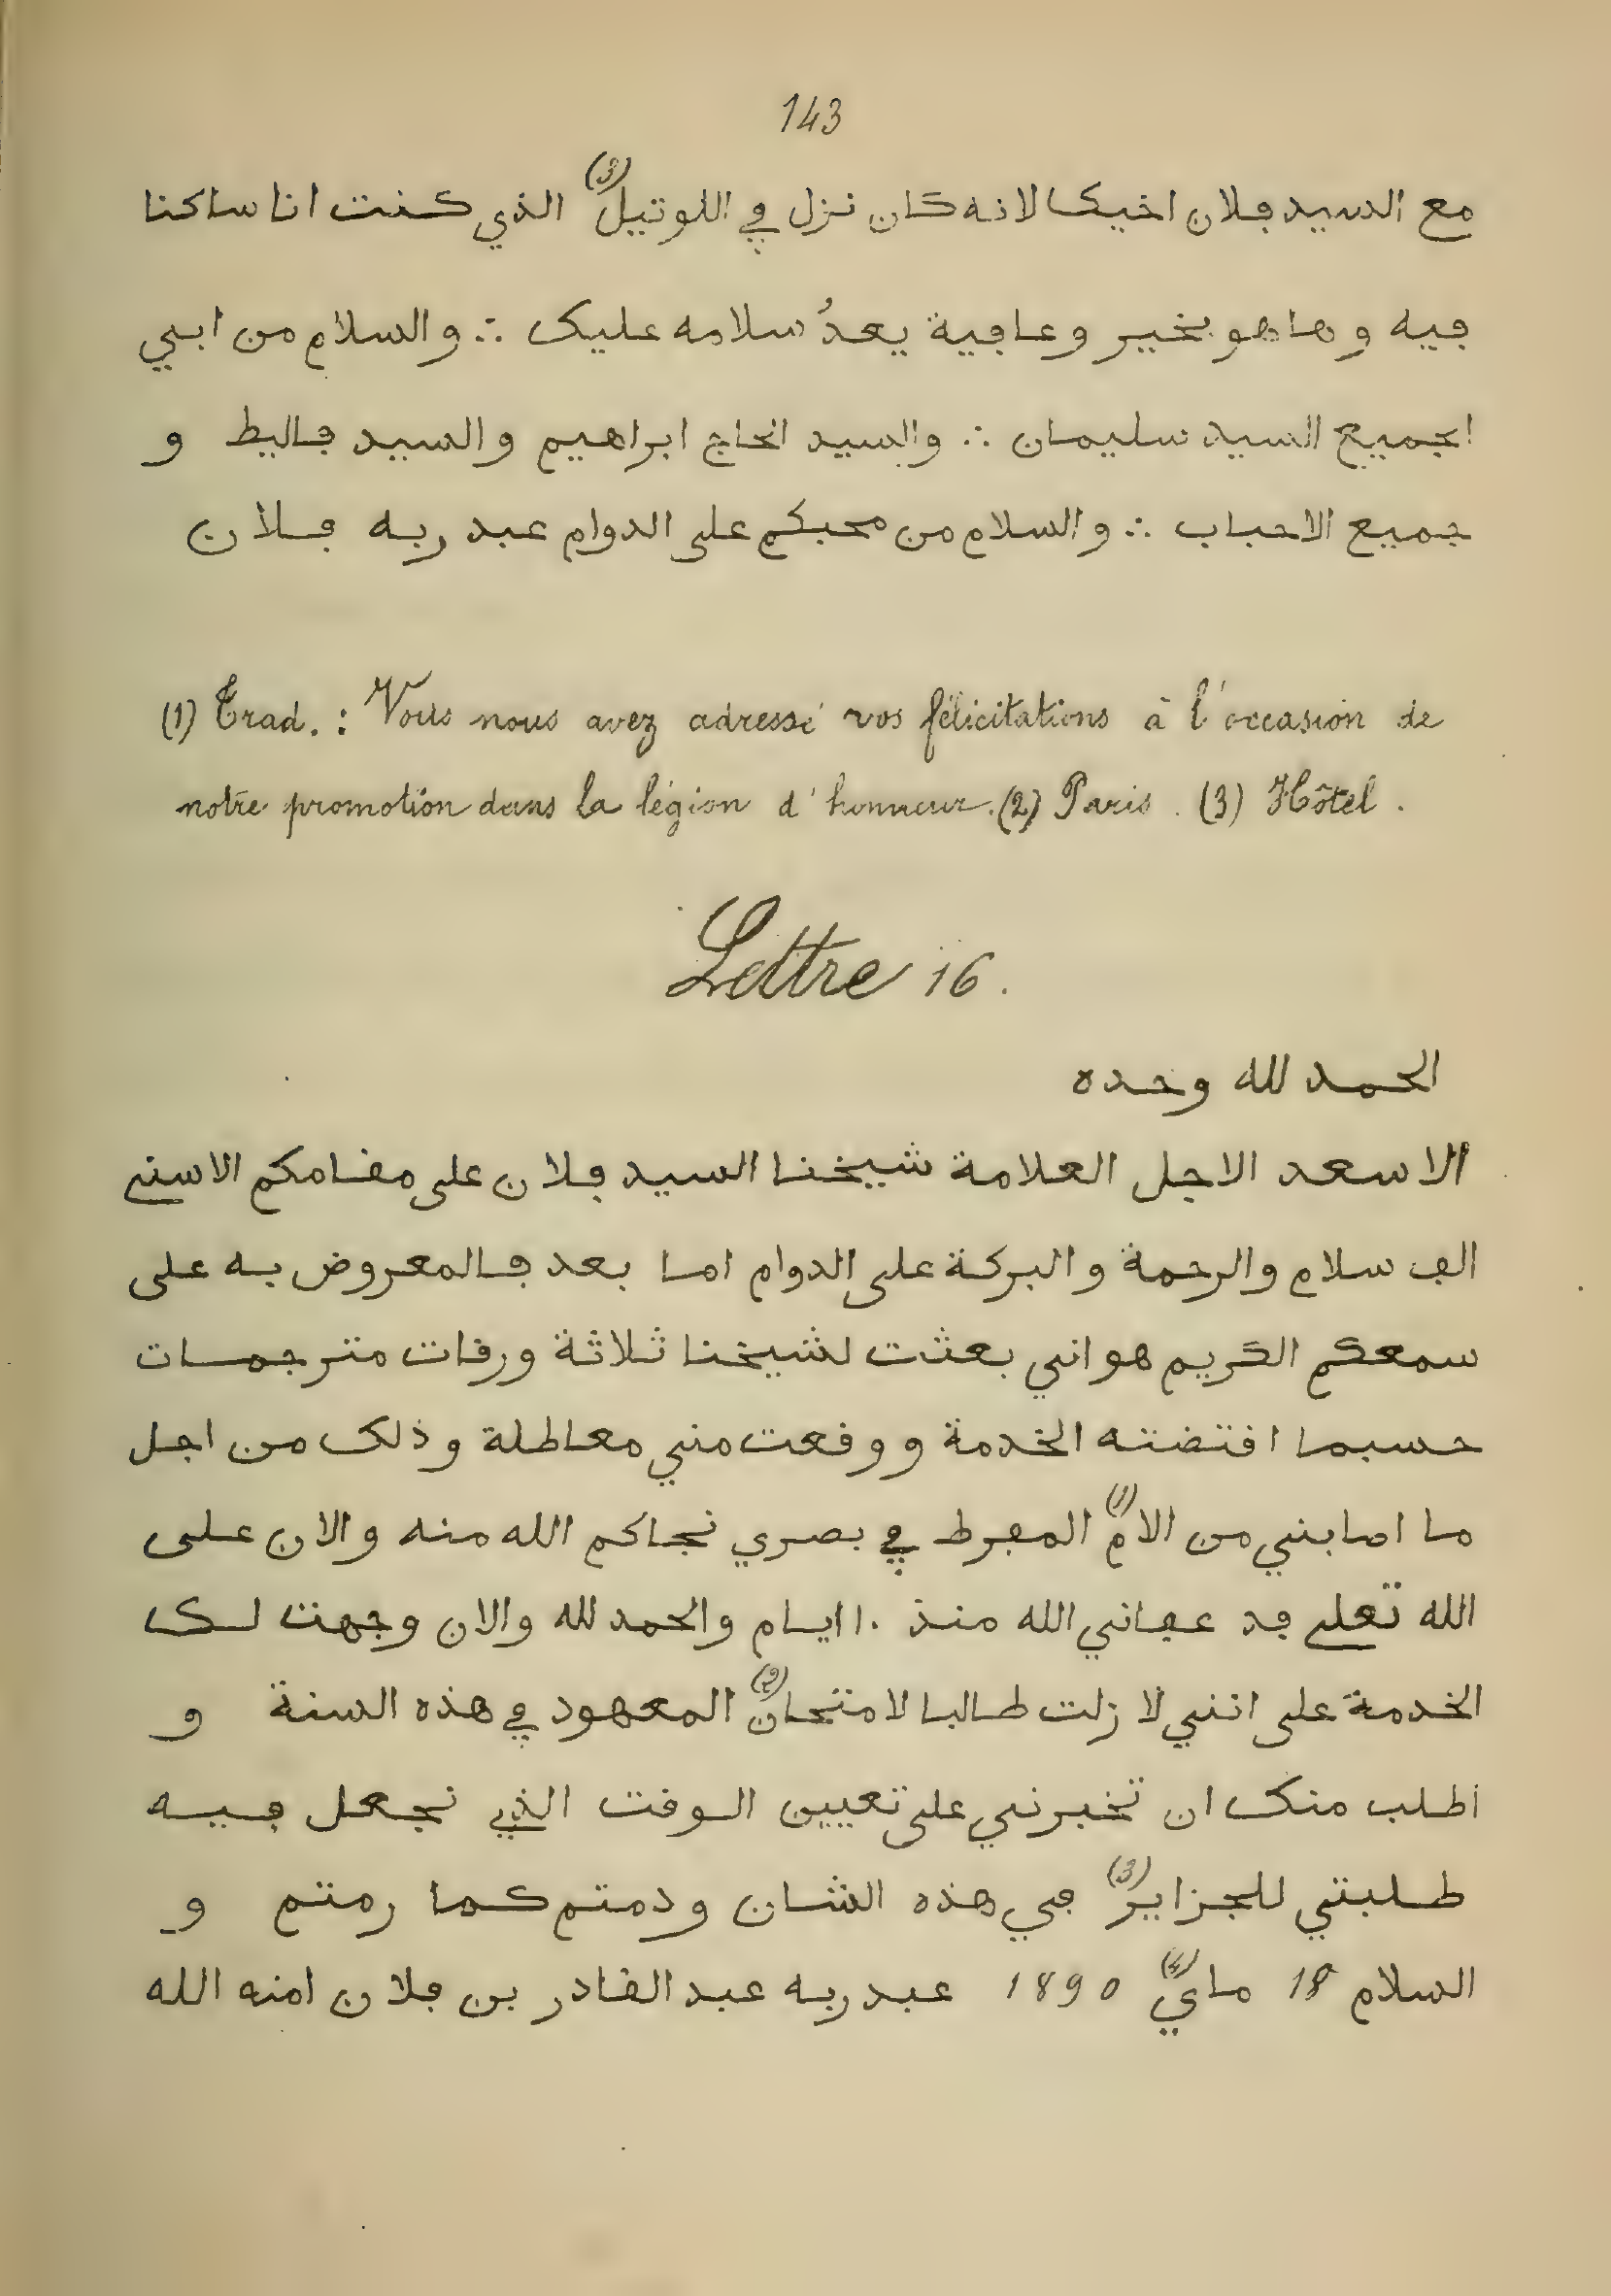 143
مع السيد ڢلان اخيك لانه كان نزل ڢي اللوتيل (3) الذي كنت انا ساكنا
ڢيه وها هو بخير وعاڢية يعدُ سلامه عليك ∴ والسلام من ابي
الجميع السيد سليمان ∴ والسيد الحاج ابراهيم والسيد ڢاليط و
جميع الاحباب ∴ والسلام من محبكم على الدوام عبد ربه ڢلان
(1) Trad. : Vous nous avez adressé vos félicitations à l'occasion de
notre promotion dans la légion d'honneur. (2) Paris. (3) Hôtel.
Lettre 16.
الحمد لله وحده
الاسعد الاجل العلامة شيخنا السيد ڢلان على مفامكم الاسنى
الڢ سلام والرحمة والبركة على الدوام اما بعد ڢالمعروض به على
سمعكم الكريم هو اني بعثت لشيخنا ثلاثة ورفات مترجمات
حسبما افتضته الخدمة ووفعت مني معاطلة وذلك من اجل
ما اصابني من الام (1) المڢرط ڢي بصري نجاكم الله منه والان على
الله تعلى فد عڢاني الله منذ ١٠ ايام والحمد لله والان وجهت لك
الخدمة على انني لا زلت طالبا لامتحان (2) المعهود ڢي هذه السنة و
اطلب منك ان تخبرني على تعيين الوفت الذي نجعل ڢيه
طلبتي للجزاير (3) ڢي هذه الشان ودمتم كما رمتم و
السلام 18 ماي (4) 1890 عبد ربه عبد الفادر بن ڢلان امنه الله